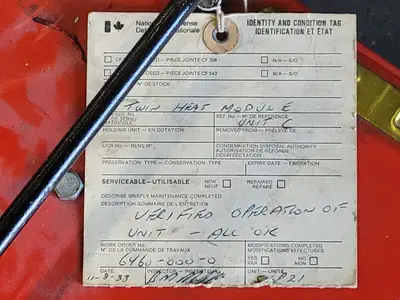 National Defense IDENTITY AND CONDITION TAG
Défense nationale IDENTIFICATION ET ÉTAT
PIÈCE JOINTE CF 358 N/A – S/O
PIÈCE JOINTE CF 543 N/A – S/O
N° DE STOCK
TWIN HEAT MODULE
REF. No – N° DE RÉFÉRENCE
UNIT
HOLDING UNIT – EN DOTATION REMOVED FROM – PRÉLEVÉ DE
UCR No – RENQ N° CONDEMNATION DISPOSAL AUTHORITY
AUTORISATION DE RÉFORME
DÉSAFFECTATION
PRESERVATION TYPE – CONSERVATION TYPE EXPIRY DATE – EXPIRATION
SERVICEABLE – UTILISABLE NEW REPAIRED
NEUF RÉPARÉ
DESCRIBE BRIEFLY MAINTENANCE COMPLETED
DESCRIPTION SOMMAIRE DE L'ENTRETIEN
VERIFIED OPERATION OF
UNIT – ALL OK
WORK ORDER No MODIFICATIONS COMPLETED
N° DE LA COMMANDE DE TRAVAUX MODIFICATIONS EFFECTUÉES
6460-000-0 YES NO
OUI NON
DATE INSPECTOR – INSPECTEUR UNIT – UNITÉ